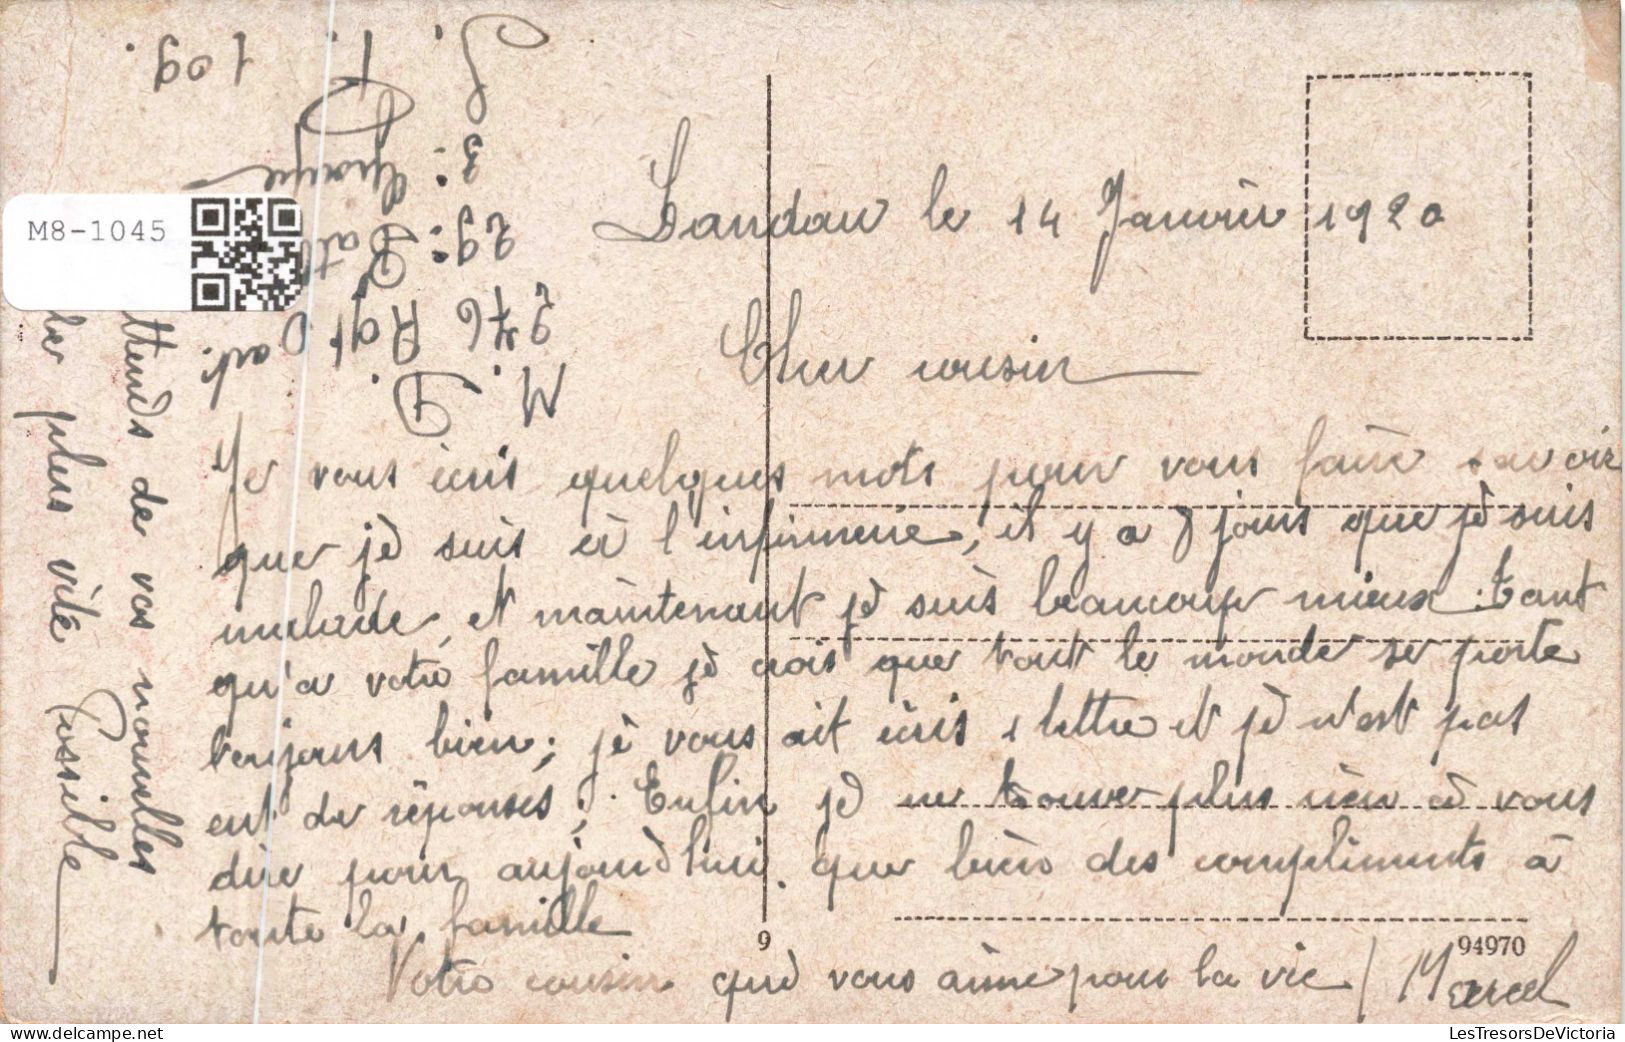 Landau le 14 Janvier 1920
Cher cousin
Je vous écris quelques mots pour vous faire savoir
que je suis à l'infirmerie, il y a 8 jours que je suis
malade, et maintenant je suis beaucoup mieux. tant
qu'a votre famille je crois que tout le monde se porte
toujours bien; je vous ait écris 1 lettre et je n'est pas
eut de réponses; Enfin je ne trouve plus rien à vous
dire pour aujourd'hui. que bien des compliments à
toute la famille
Votre cousin que vous aime pour la vie / Marcel
ttends de vos nouvelles
le plus vite Possible
M. D.
276 Rgt D art.
29e Batt
3e Groupe
S. P.
109.
M8-1045
9
94970
LesTresorsDeVictoria